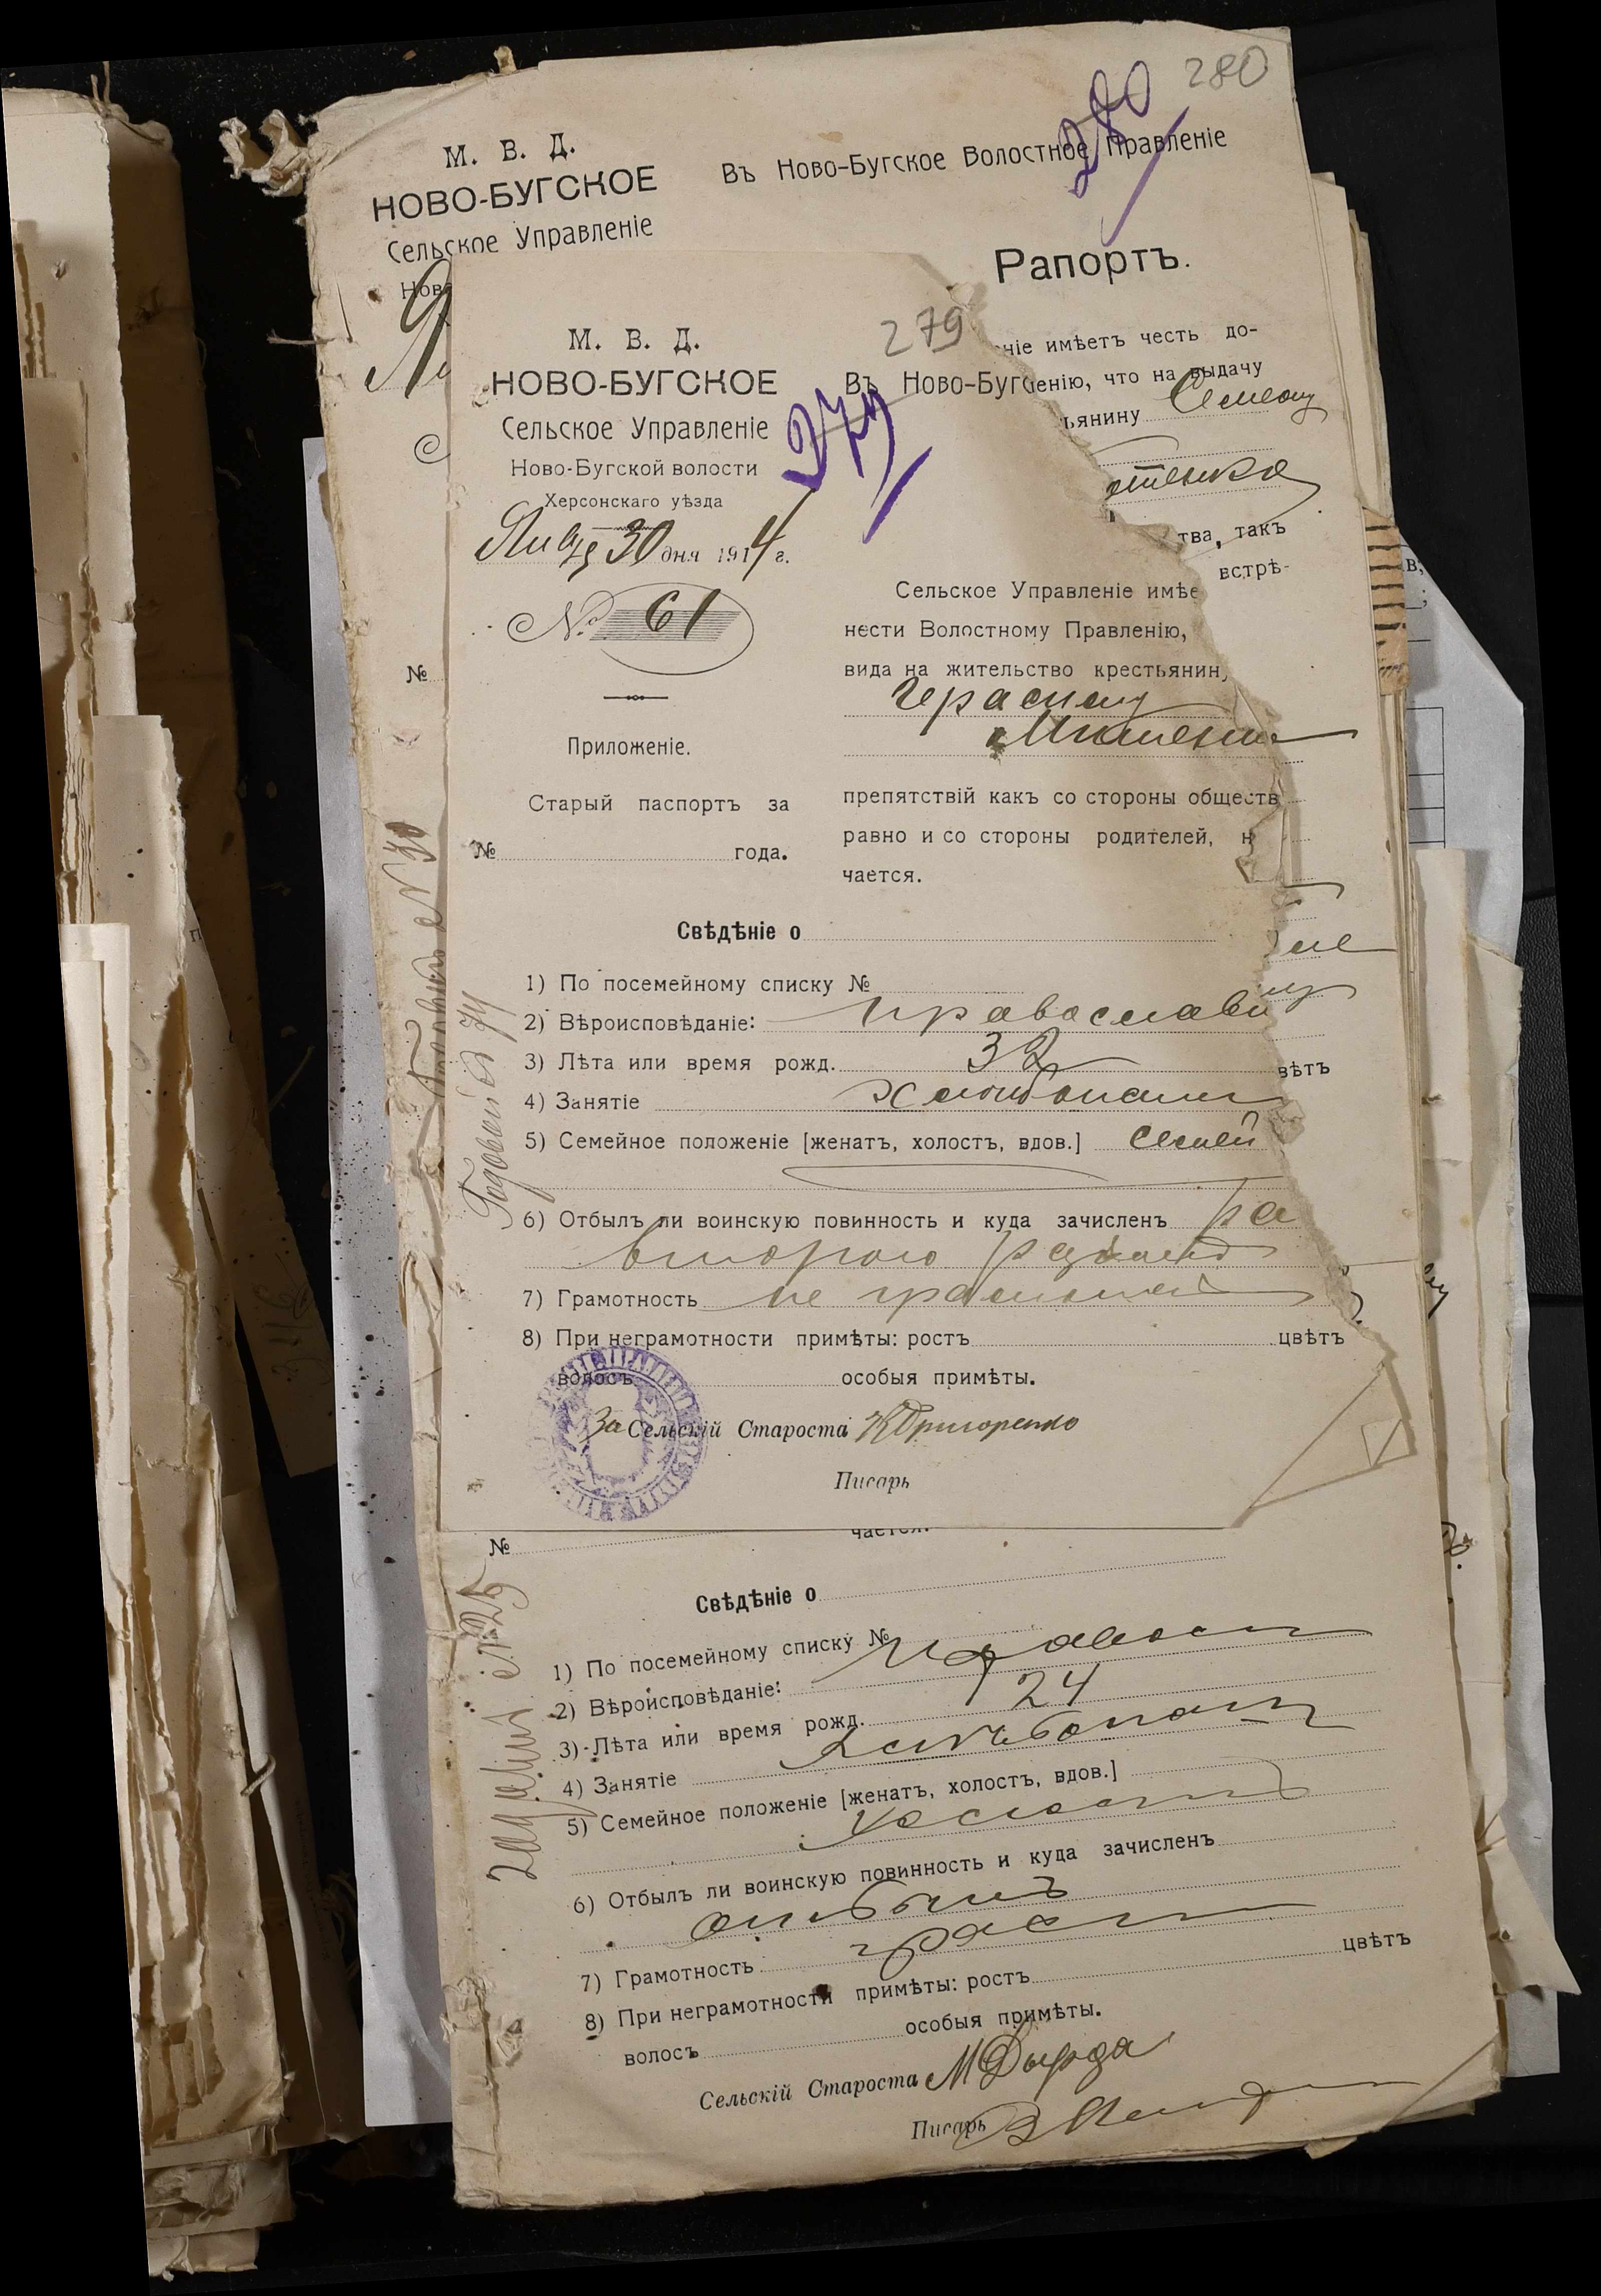 280
280
М. В. Д.
НОВО-БУГСКОЕ
Сельское Управленіе
Нов
Въ Ново-Бугское Волостное Правленіе
Рапортъ.
ніе имѣетъ честь до-
ленію, что на выдачу
ьянину Семену
тенко
тва, такъ
встрѣ-
№
279
279
М. В. Д.
НОВО-БУГСКОЕ
Сельское Управленіе
Ново-Бугской волости
Херсонскаго уѣзда
Янв 30 дня 1914 г.
№ 61
Приложеніе.
Старый паспортъ за
№ года.
Въ Ново-Буг
Сельское Управленіе имѣе
нести Волостному Правленію,
вида на жительство крестьянин
Герасиму
препятствій какъ со стороны обществ
равно и со стороны родителей, н
чается.
Свѣдѣніе о
1) По посемейному списку №
2) Вѣроисповѣданіе: православн
3) Лѣта или время рожд. 32
4) Занятіе хлѣбопаш
5) Семейное положеніе [женатъ, холостъ, вдов.] семей
6) Отбылъ ли воинскую повинность и куда зачисленъ ра
второго разряда
7) Грамотность не грамотный
8) При неграмотности примѣты: ростъ цвѣтъ
волосъ особыя примѣты.
За Сельскій Староста К Григоренко
Писарь
вѣтъ
Годовый № 74
Годовый № 30
чается.
№
Свѣдѣніе о
1) По посемейному списку №
2) Вѣроисповѣданіе: правосл
3) Лѣта или время рожд. 24
4) Занятіе хлѣбопаш
5) Семейное положеніе [женатъ, холостъ, вдов.]
холостъ
6) Отбылъ ли воинскую повинность и куда зачисленъ
отбылъ
7) Грамотность грам
8) При неграмотности примѣты: ростъ цвѣтъ
волосъ особыя примѣты.
Сельскій Староста М Дырда
Писарь
№ 25